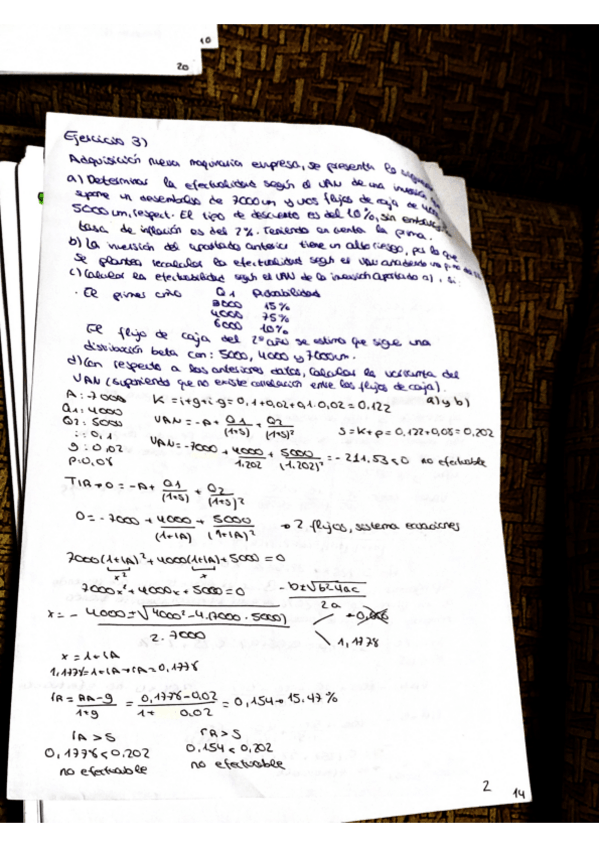 10
20
Ejercicio 3)
Adquisición nueva maquinaria empresa, se presenta lo
a) Determinar la efectuabilidad según el VAN de una inversión
supone un desembolso de 7000um y unos flujos de caja de 4000
5000um, respect. El tipo de descuento es del 10%, sin embargo
tasa de inflación es del 2%. Teniendo en cuenta la prima.
b) La inversión del apartado anterior tiene un alto riesgo, por lo que
se plantea recalcular la efectuabilidad según el VAN añadiendo una
c) Calcular la efectuabilidad según el VAN de la inversión apartado a), si:
· El primer año Q1 Probabilidad
3000 15%
4000 75%
6000 10%
El flujo de caja del 2º año se estima que sigue una
distribución beta con: 5000, 4000 y 7000um.
d) Con respecto a los anteriores datos, calcular la varianza del
VAN (suponiendo que no existe correlación entre los flujos de caja).
A: -7000 K = i+g+i·g = 0,1+0,02+0,1·0,02 = 0,122 a) y b)
Q1: 4000
Q2: 5000 VAN = -A + Q1/(1+s) + Q2/(1+s)² s = K+p = 0,122+0,08 = 0,202
i: 0,1
g: 0,02 VAN = -7000 + 4000/1.202 + 5000/(1.202)² = -211,53 < 0 no efectuable
p: 0,08
TIR → 0 = -A + Q1/(1+s) + Q2/(1+s)²
0 = -7000 + 4000/(1+rA) + 5000/(1+rA)² → 2 flujos, sistema ecuaciones
7000(1+rA)² + 4000(1+rA) + 5000 = 0
x² x
7000x² + 4000x + 5000 = 0 -b±√b²-4ac / 2a
x = - 4000 ± √4000² - 4·7000·5000) / 2·7000
1,1778
x = 1+rA
1,1778 = 1+rA → rA = 0,1778
rR = RA-g / 1+g = 0,1778-0,02 / 1+ 0,02 = 0,154 → 15.47%
rA > s rR > s
0,1778 < 0,202 0,154 < 0,202
no efectuable no efectuable
2
14